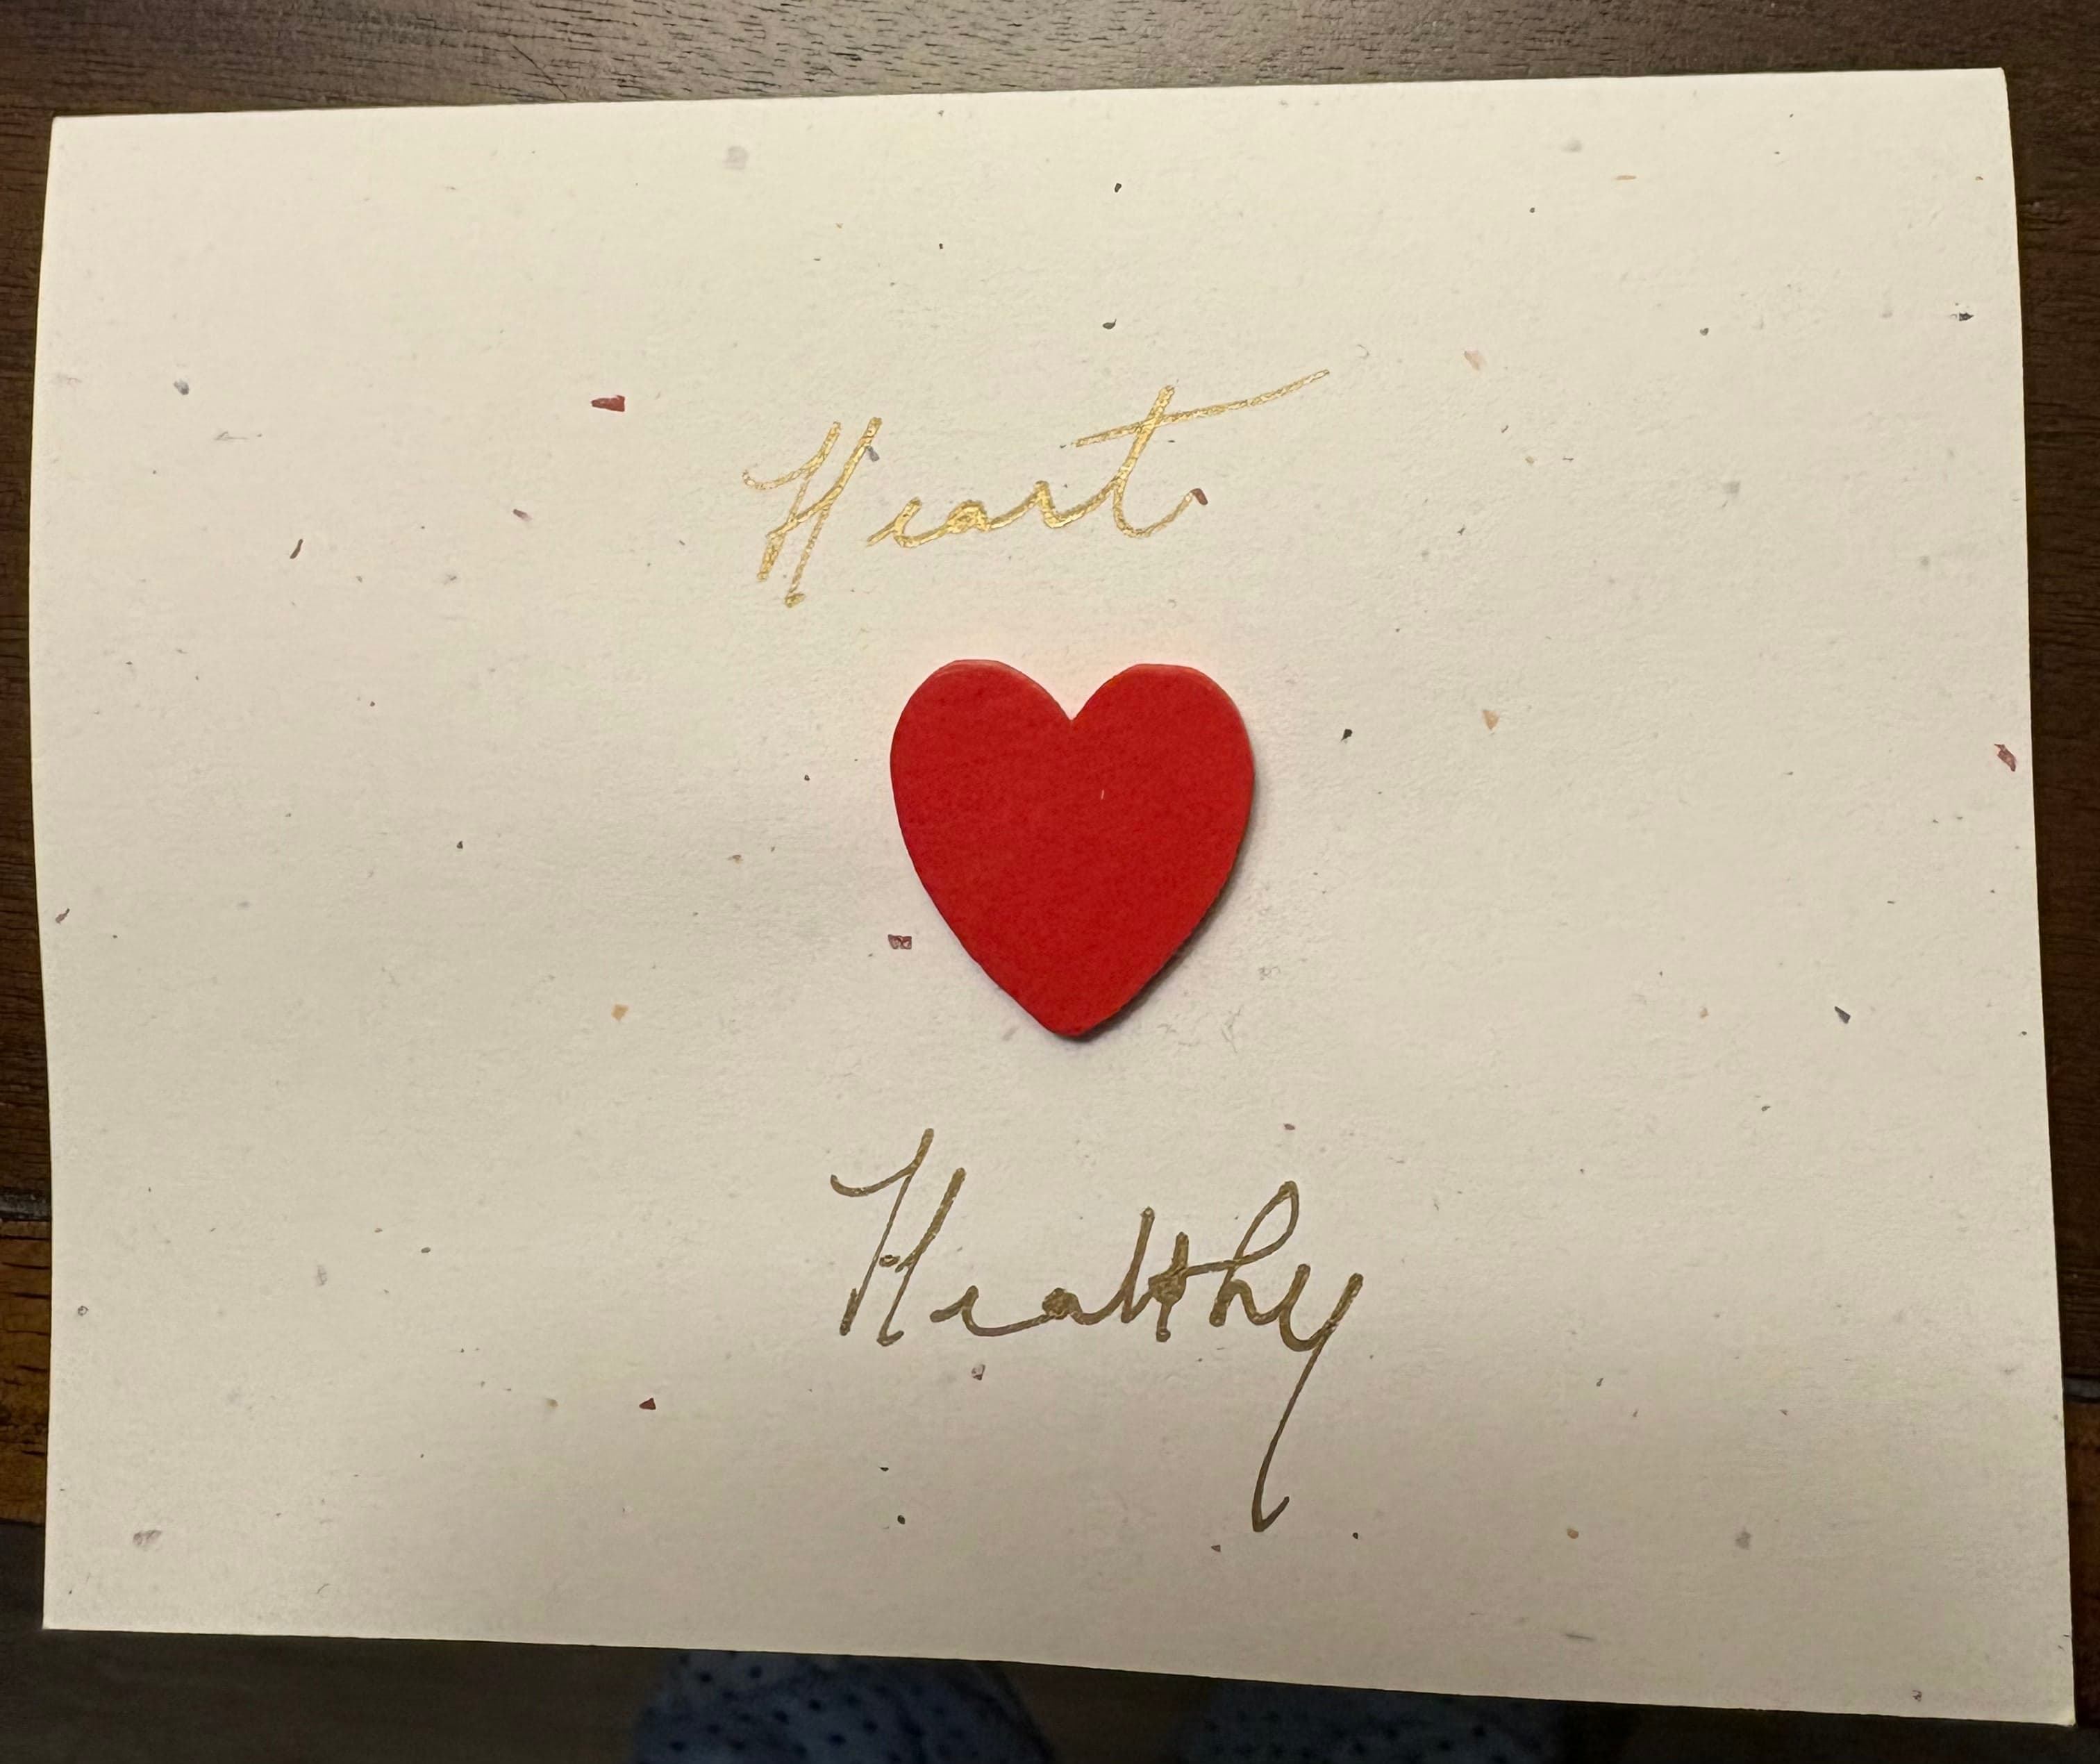 Heart
Healthy